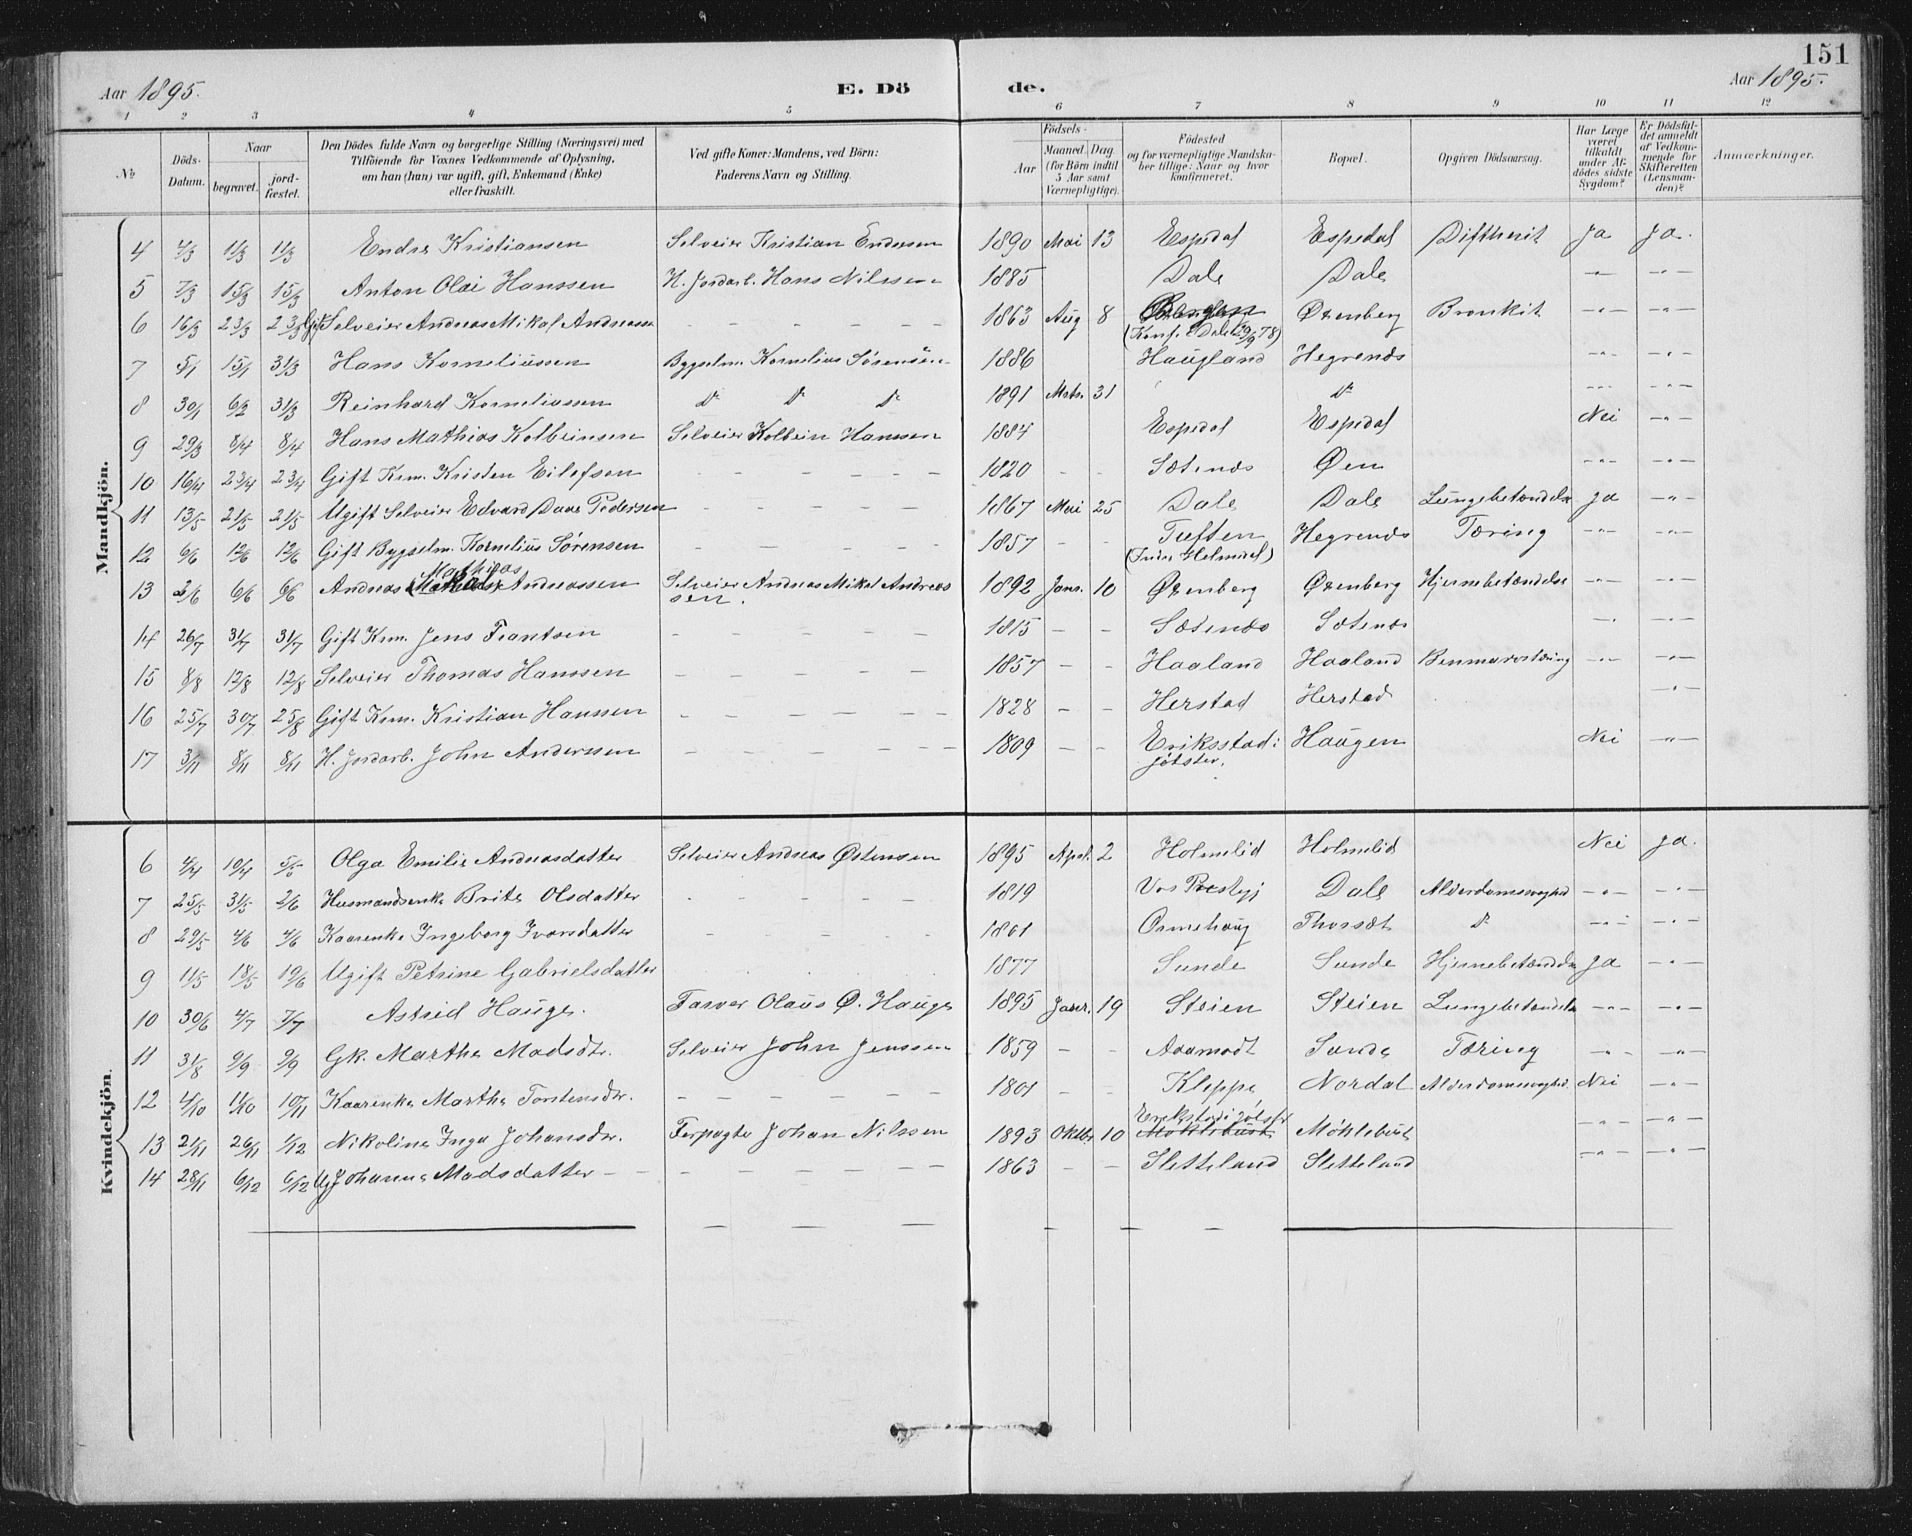 151
Aar 1895. E. Dö de. Aar 1895.
1 2 3 4 5 6 7 8 9 10 11 12
No
Döds-Datum.
Naar
begravet.
jord-fæstet.
Den Dödes fulde Navn og borgerlige Stilling (Næringsvei) med
Tilföiende for Voxnes Vedkommende af Oplysning,
om han (hun) var ugift, gift, Enkemand (Enke)
eller fraskilt.
Ved gifte Koner: Mandens, ved Börn:
Faderens Navn og Stilling.
Födsels-
Aar
Maaned. Dag.
(for Börn indtil
5 Aar samt
Værnepligtige).
Födested
og for værnepligtige Mandska-
ber tillige: Naar og hvor
konfirmeret.
Bopæl.
Opgiven Dödsaarsag.
Har Læge
været
tilkaldt
under Af-
dödes sidste
Sygdom?
Er Dödsfal-
det anmeldt
af Vedkom-
mende for
Skifteretten
(Lensman-
den)?
Anmærkninger.
Mandkjön.
4 4/3 11/3 11/3 Endre Kristiansen Selveier Kristian Endresen 1890 Mai 13 Espedal Espedal Diftherit Ja Ja.
5 7/3 15/3 15/3 Anton Olai Hanssen H. Jordarb. Hans Nilssen 1885 Dale Dale -"- -"-
6 16/3 23/3 23/3 Gift Selveier Andreas Mikal Andreassen - - - - - 1863 Aug 8 Øxenberg Bronkit -"- -"-
(Konf. i Dale 29/9 78)
7 5/1 15/1 31/3 Hans Korneliussen Bygselm. Kornelius Sørensen 1886 Haugland Hegrenæs -"- -"-
8 30/1 6/2 31/3 Reinhard Korneliussen do do do 1891 Mrts. 31 do -"- -"-
9 29/3 8/4 8/4 Hans Mathias Kolbeinsen Selveier Kolbein Hanssen 1884 Espedal Espedal Nei -"-
10 16/4 23/4 23/4 Gift Krm. Kristen Eilefsen - - - - - 1820 - - Sætenæs Øen -"- -"-
11 13/5 21/5 21/5 Ugift Selveier Edvard Daae Pedersen - - - - - 1867 Mai 25 Dale Dale Lungebetændelse Ja -"-
12 6/6 12/6 12/6 Gift Bygselm. Kornelius Sørensen - - - - - 1857 - - Tuften Hegrenæs Tæring -"- -"-
(Indre Holmedal)
Mathias
13 2/6 6/6 6/6 Andreas Andreassen Selveier Andreas Mikal Andreas 1892 Janr. 10 Øxenberg Øxenberg Hjernebetændelse -"- -"-
sen.
14 26/7 31/7 31/7 Gift Krm. Jens Frantsen - - - - - 1815 - - Sætenæs Sætenæs -"- -"-
15 8/8 12/8 12/8 Selveier Thomas Hanssen - - - - - 1857 - - Haaland Haaland Benmarvstæring -"- -"-
16 25/7 30/7 25/8 Gift Krm. Kristian Hanssen - - - - - 1828 - - Herstad Herstad -"-
17 3/11 8/11 8/11 H. Jordarb. John Anderssen - - - - - 1809 - - Eriksstad i Haugen Nei -"-
Jølster.
Kvindekjön.
6 4/4 10/4 5/5 Olga Emilie Andreasdatter Selveier Andreas Østensen 1895 April 2 Holmelid Holmelid Nei Ja.
7 25/5 31/5 2/6 Husmandsenke Brite Olsdatter - - - - - 1819 Vos Prestegj Dale Alderdomssvaghed -"- -"-
8 29/5 4/6 4/6 Kaarenke Ingeborg Ivarsdatter - - - - - 1801 Ormehaug Thorsæt do -"- -"-
9 11/5 18/5 19/6 Ugift Petrine Gabrielsdatter 1877 Sunde Sunde Hjernebetændelse Ja -"-
10 30/6 4/7 7/7 Astrid Hauge. Farver Olaus Ø. Hauge 1895 Janr. 19 Steien Steien Lungebetændelse -"- -"-
11 31/8 9/9 9/9 Gk. Marthe Madsdtr. Selveier John Jenssen 1859 - - Aaamodt Sande Tæring -"- -"-
12 4/10 11/10 10/11 Kaarenke Marthe Torstensdtr. - - - - - 1801 - - Kleppe Nordal Alderdomssvaghed Nei -"-
Erikstad i Jølster
13 21/11 26/11 1/12 Nikoline Inga Johansdtr. Forpagter Johan Nilssen 1893 Oktbr 10 Møklebust Møklebust -"- -"-
14 28/11 6/12 6/12 Ug. Johanne Madsdatter - - - - - 1863 - - Sletteland Sletteland -"- -"-